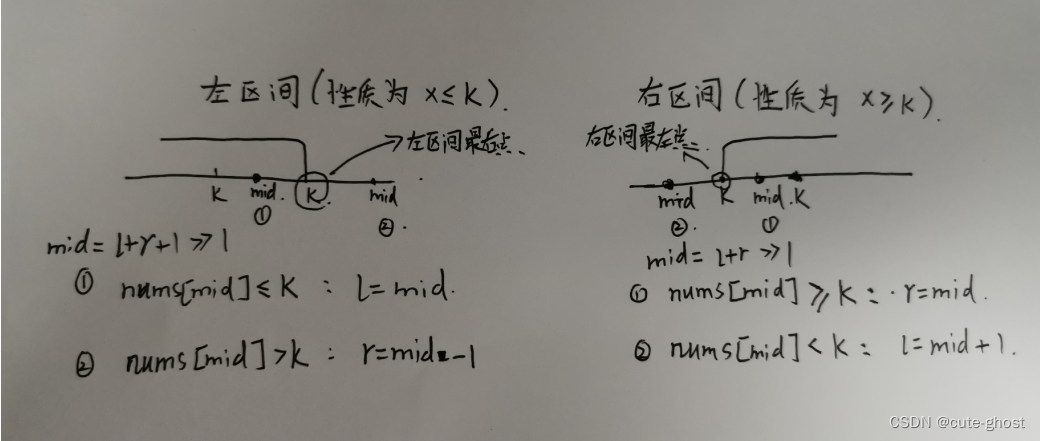 左区间(性质为 x≤K).
左区间最右点、
K
mid.
①
K.
mid
②.
mid = l+r+1 >> 1
① nums[mid] ≤ K : l=mid.
② nums[mid] > K : r=mid-1
右区间(性质为 x≥K).
右区间最左点、
mid
②.
K
mid.
①
K
mid = l+r >> 1
① nums[mid] ≥ K : r=mid.
② nums[mid] < K : l=mid+1.
CSDN @cute-ghost